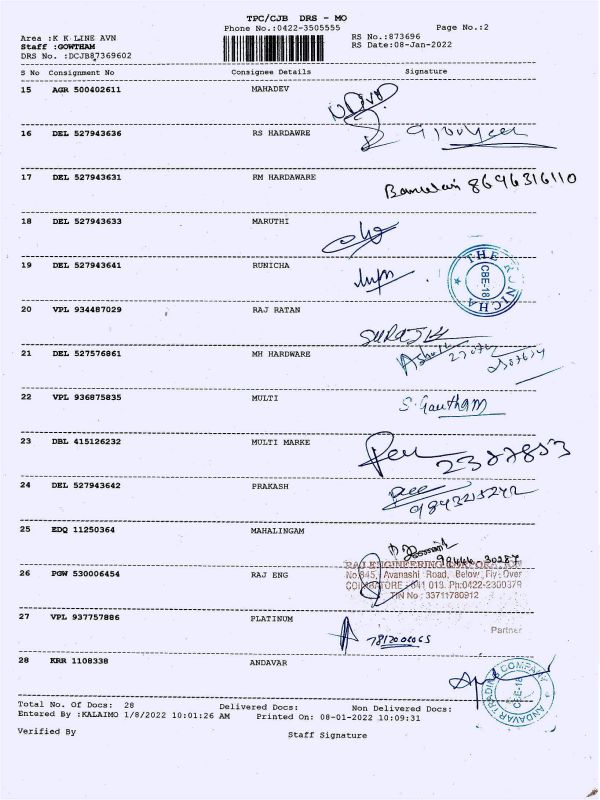 TPC/CJB DRS - MO
Phone No.:0422-3505555
Page No.:2
Area :K K LINE AVN
RS No.:873696
Staff :GOWTHAM
RS Date:08-Jan-2022
DRS No. :DCJB87369602
S No Consignment No Consignee Details Signature
15 AGR 500402611 MAHADEV
16 DEL 527943636 RS HARDAWRE
17 DEL 527943631 RM HARDAWARE
8696316110
18 DEL 527943633 MARUTHI
19 DEL 527943641 RUNICHA
THE RUNICHA
CBE-18
20 VPL 934487029 RAJ RATAN
SURAJ
21 DEL 527576861 MH HARDWARE
Ashok
22 VPL 936875835 MULTI
S. Gautham
23 DBL 415126232 MULTI MARKE
24 DEL 527943642 PRAKASH
25 EDQ 11250364 MAHALINGAM
26 PGW 530006454 RAJ ENG
RAJ ENGINEERING CORPORATION
No.845, Avanashi Road, Below Fly-Over
COIMBATORE - 641 018. Ph:0422-2300379
TIN No : 33711780912
Partner
27 VPL 937757886 PLATINUM
28 KRR 1108338 ANDAVAR
ANDAVAR TRADING COMPANY
CBE-18
Total No. Of Docs: 28 Delivered Docs: Non Delivered Docs:
Entered By :KALAIMO 1/8/2022 10:01:26 AM Printed On: 08-01-2022 10:09:31
Verified By Staff Signature